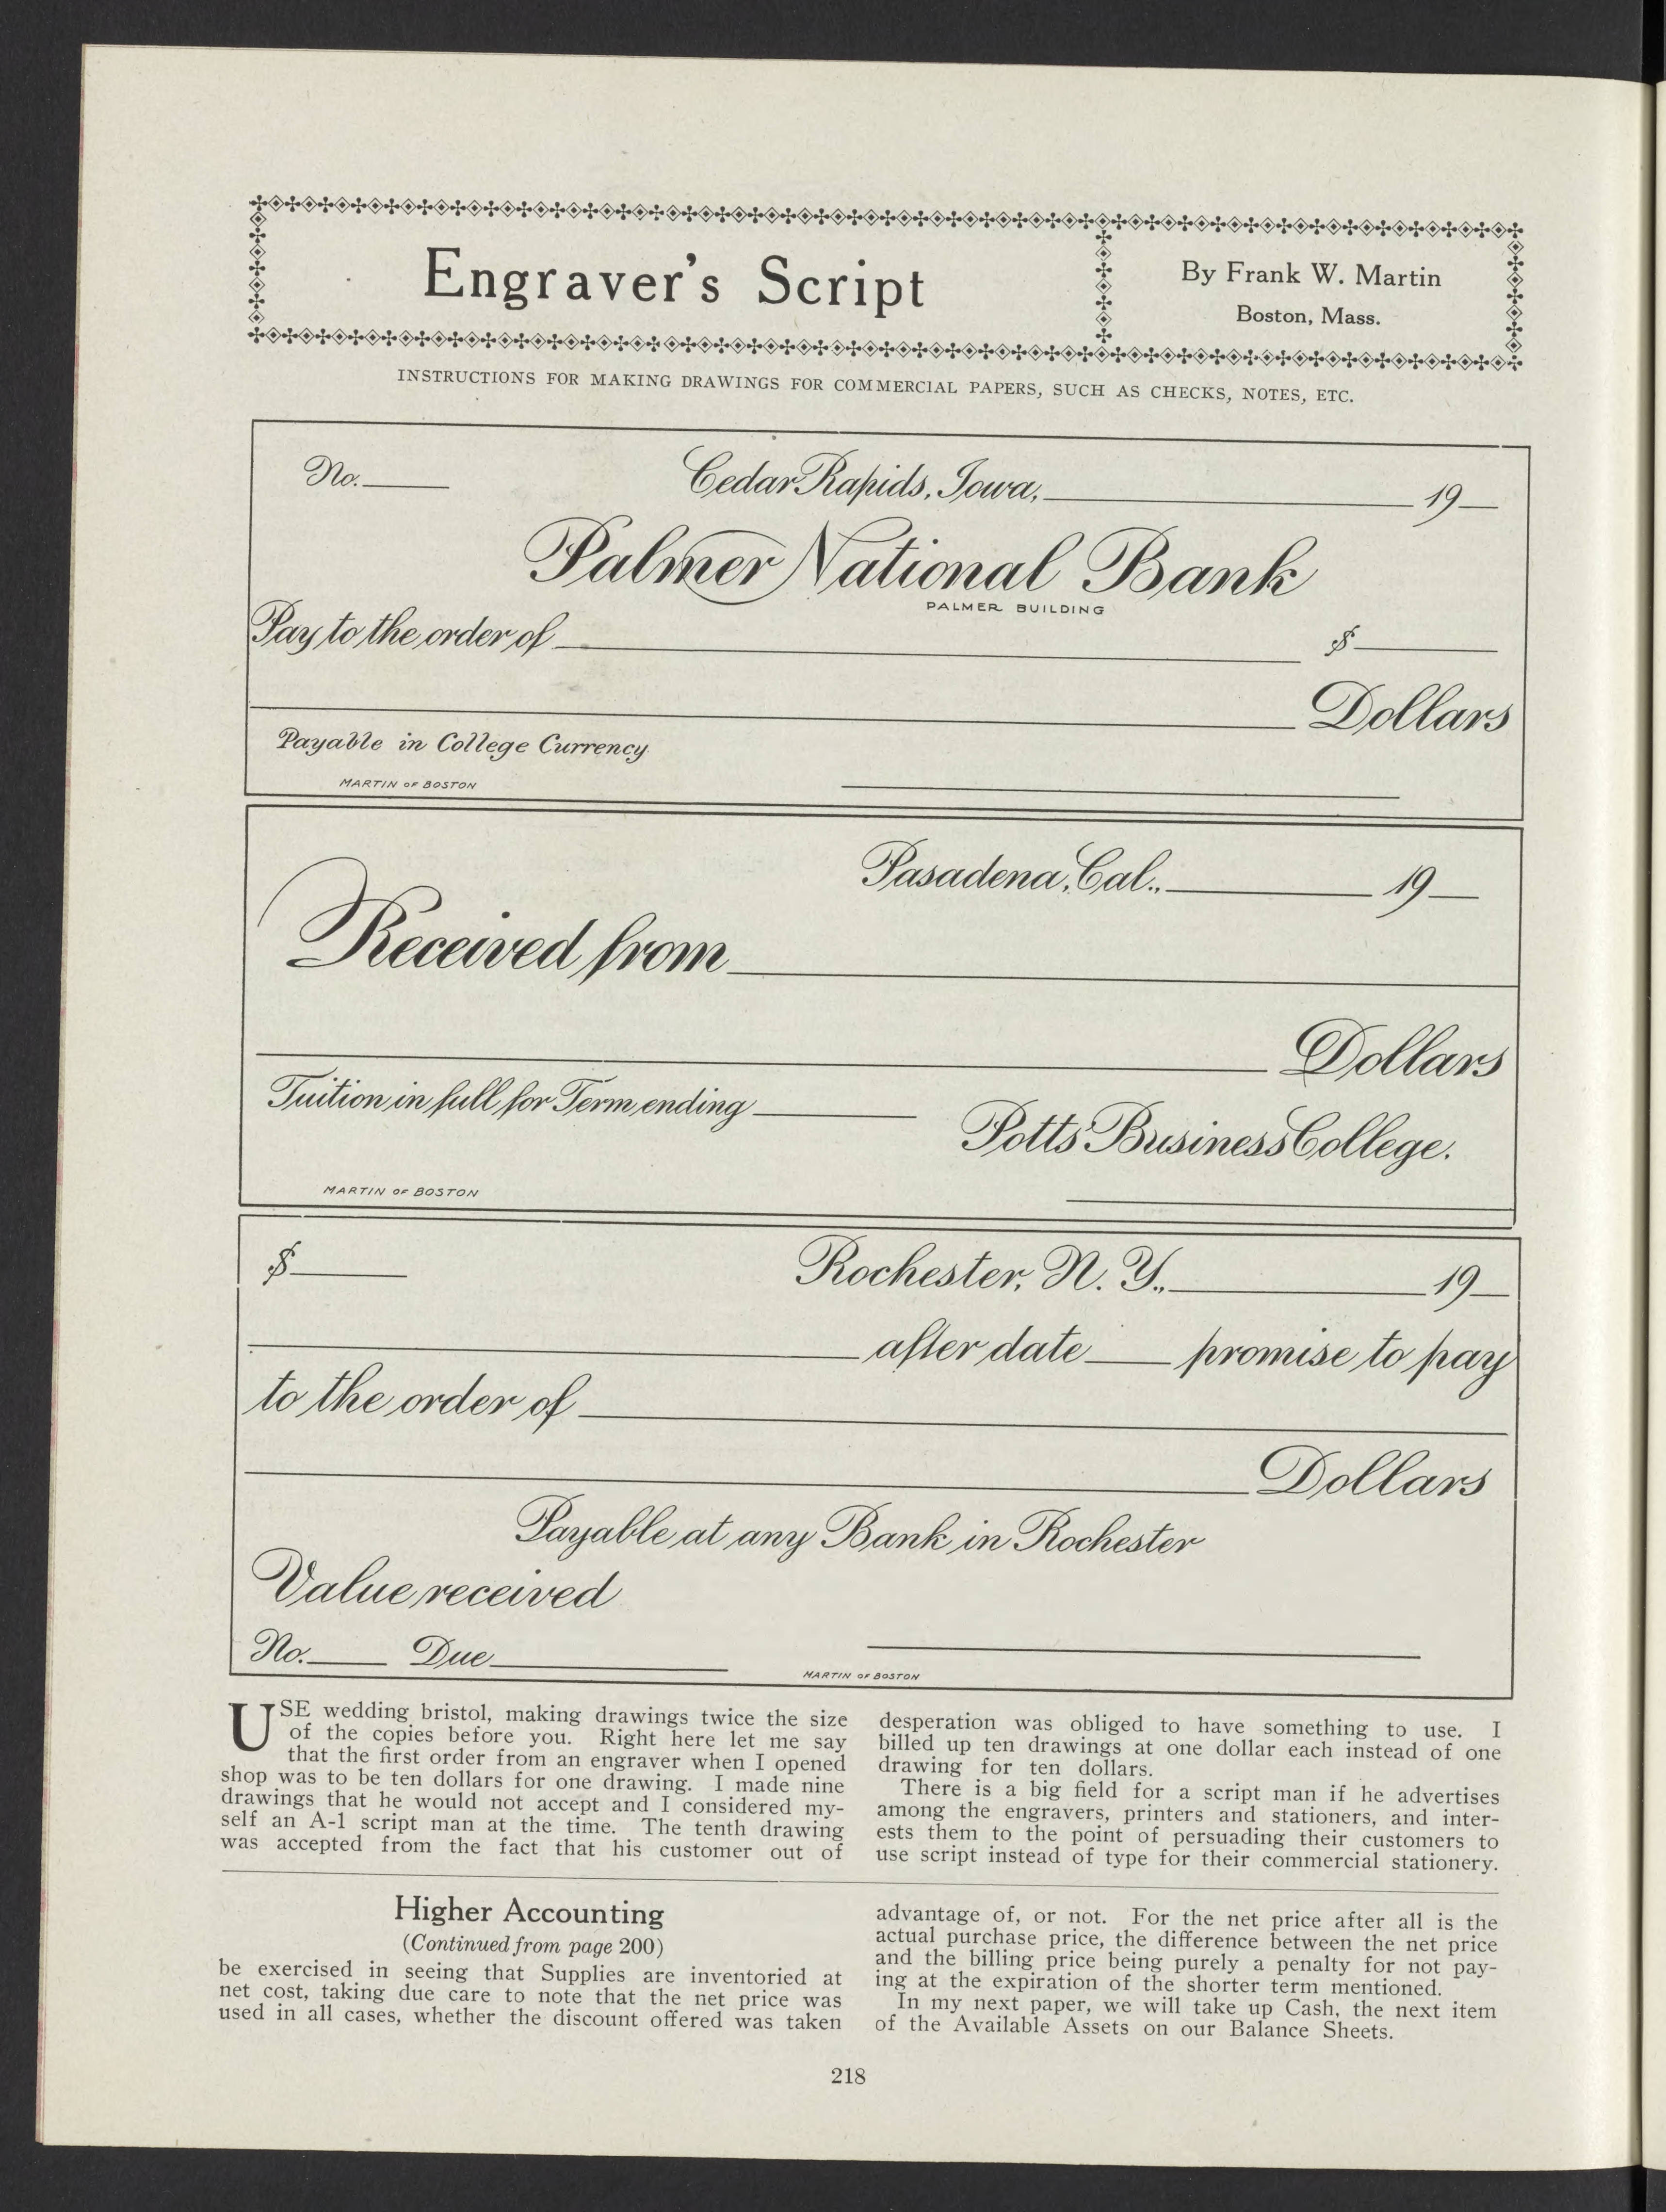 Engraver's Script
By Frank W. Martin
Boston, Mass.
INSTRUCTIONS FOR MAKING DRAWINGS FOR COMMERCIAL PAPERS, SUCH AS CHECKS, NOTES, ETC.
No. Cedar Rapids, Iowa, 19
Palmer National Bank
PALMER BUILDING
Pay to the order of $
Dollars
Payable in College Currency
MARTIN OF BOSTON
Pasadena, Cal., 19
Received from
Dollars
Tuition in full for Term ending
Potts Business College.
MARTIN OF BOSTON
$ Rochester, N. Y., 19
after date promise to pay
to the order of
Dollars
Payable at any Bank in Rochester
Value received
No. Due
MARTIN OF BOSTON
USE wedding bristol, making drawings twice the size
of the copies before you. Right here let me say
that the first order from an engraver when I opened
shop was to be ten dollars for one drawing. I made nine
drawings that he would not accept and I considered my-
self an A-1 script man at the time. The tenth drawing
was accepted from the fact that his customer out of
desperation was obliged to have something to use. I
billed up ten drawings at one dollar each instead of one
drawing for ten dollars.
There is a big field for a script man if he advertises
among the engravers, printers and stationers, and inter-
ests them to the point of persuading their customers to
use script instead of type for their commercial stationery.
Higher Accounting
(Continued from page 200)
be exercised in seeing that Supplies are inventoried at
net cost, taking due care to note that the net price was
used in all cases, whether the discount offered was taken
advantage of, or not. For the net price after all is the
actual purchase price, the difference between the net price
and the billing price being purely a penalty for not pay-
ing at the expiration of the shorter term mentioned.
In my next paper, we will take up Cash, the next item
of the Available Assets on our Balance Sheets.
218